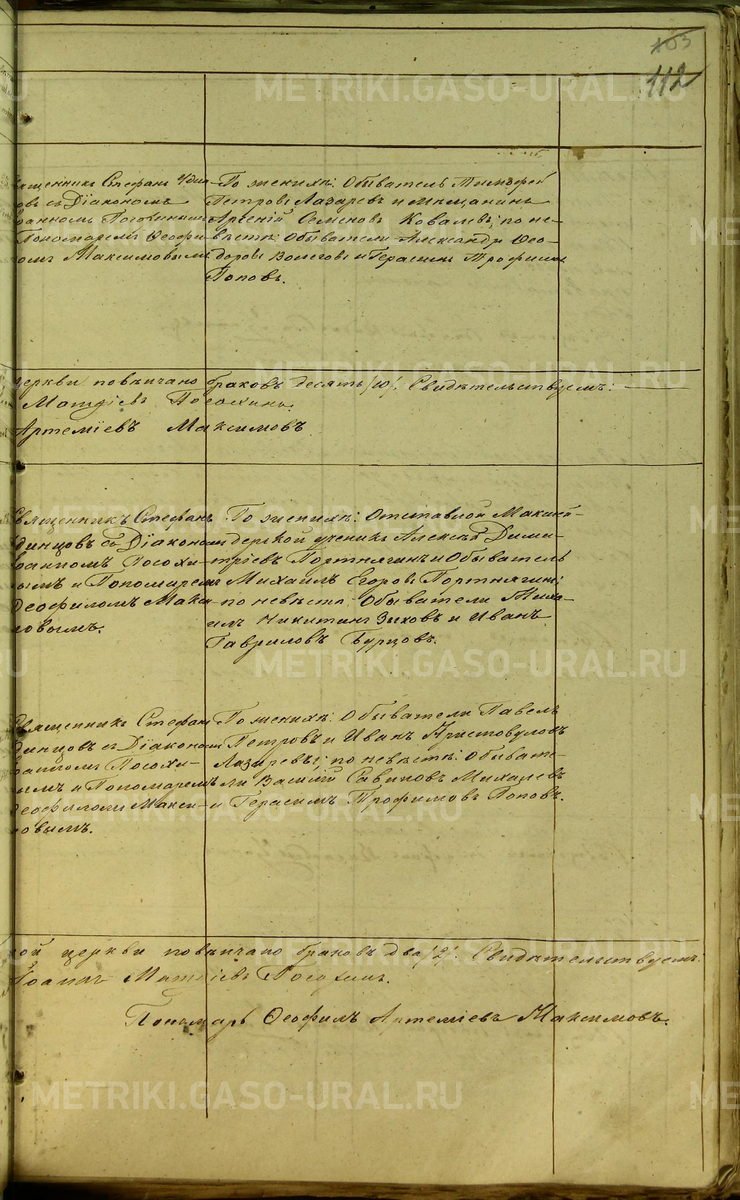 103
112
METRIKI.GASO-URAL.RU
священникъ Стефанъ Удин-
овъ съ Діакономъ
Пономаремъ Ѳеофи-
омъ Максимовымъ
По женихѣ: Обыватель Тимофей
Петровъ Лазаревъ и мѣщанинъ
Арсеній Семеновъ Ковалевъ; по не-
вѣстѣ: Обыватели Александръ Ѳео-
доровъ Волеговъ и Герасимъ Трофимовъ
Поповъ.
церкви повѣнчано браковъ десять /10/. Свидѣтельствуемъ:
METRIKI.GASO-URAL.RU
Матѳіевъ Посохинъ.
Артеміевъ Максимовъ
Священникъ Стефанъ
динцовъ съ Діакономъ
оанномъ Посохи-
ымъ и Пономаремъ
Ѳеофиломъ Макси-
мовымъ.
По женихѣ: Отставной Макшей-
дерской ученикъ Алексѣй Дими-
тріевъ Портнягинъ и Обыватель
Михаилъ Егоровъ Портнягинъ;
по невѣстѣ: Обыватели Миха-
илъ Никитинъ Зыковъ и Иванъ
Гавриловъ Бурцовъ.
METRIKI.GASO-URAL.RU
Священникъ Стефанъ
динцовъ съ Діакономъ
оанномъ Посохи-
ымъ и Пономаремъ
Ѳеофиломъ Макси-
мовымъ.
По женихѣ: Обыватели Павелъ
Петровъ и Иванъ Аристовуловъ
Лазаревы; по невѣстѣ: Обывате-
ли Василій Савиновъ Михалевъ
и Герасимъ Трофимовъ Поповъ.
METRIKI.GASO-URAL.RU
ой церкви повѣнчано браковъ два /2/. Свидѣтельствуемъ:
METRIKI.GASO-URAL.RU
Іоаннъ Матѳіевъ Посохинъ.
Пономарь Ѳеофилъ Артеміевъ Максимовъ.
METRIKI.GASO-URAL.RU